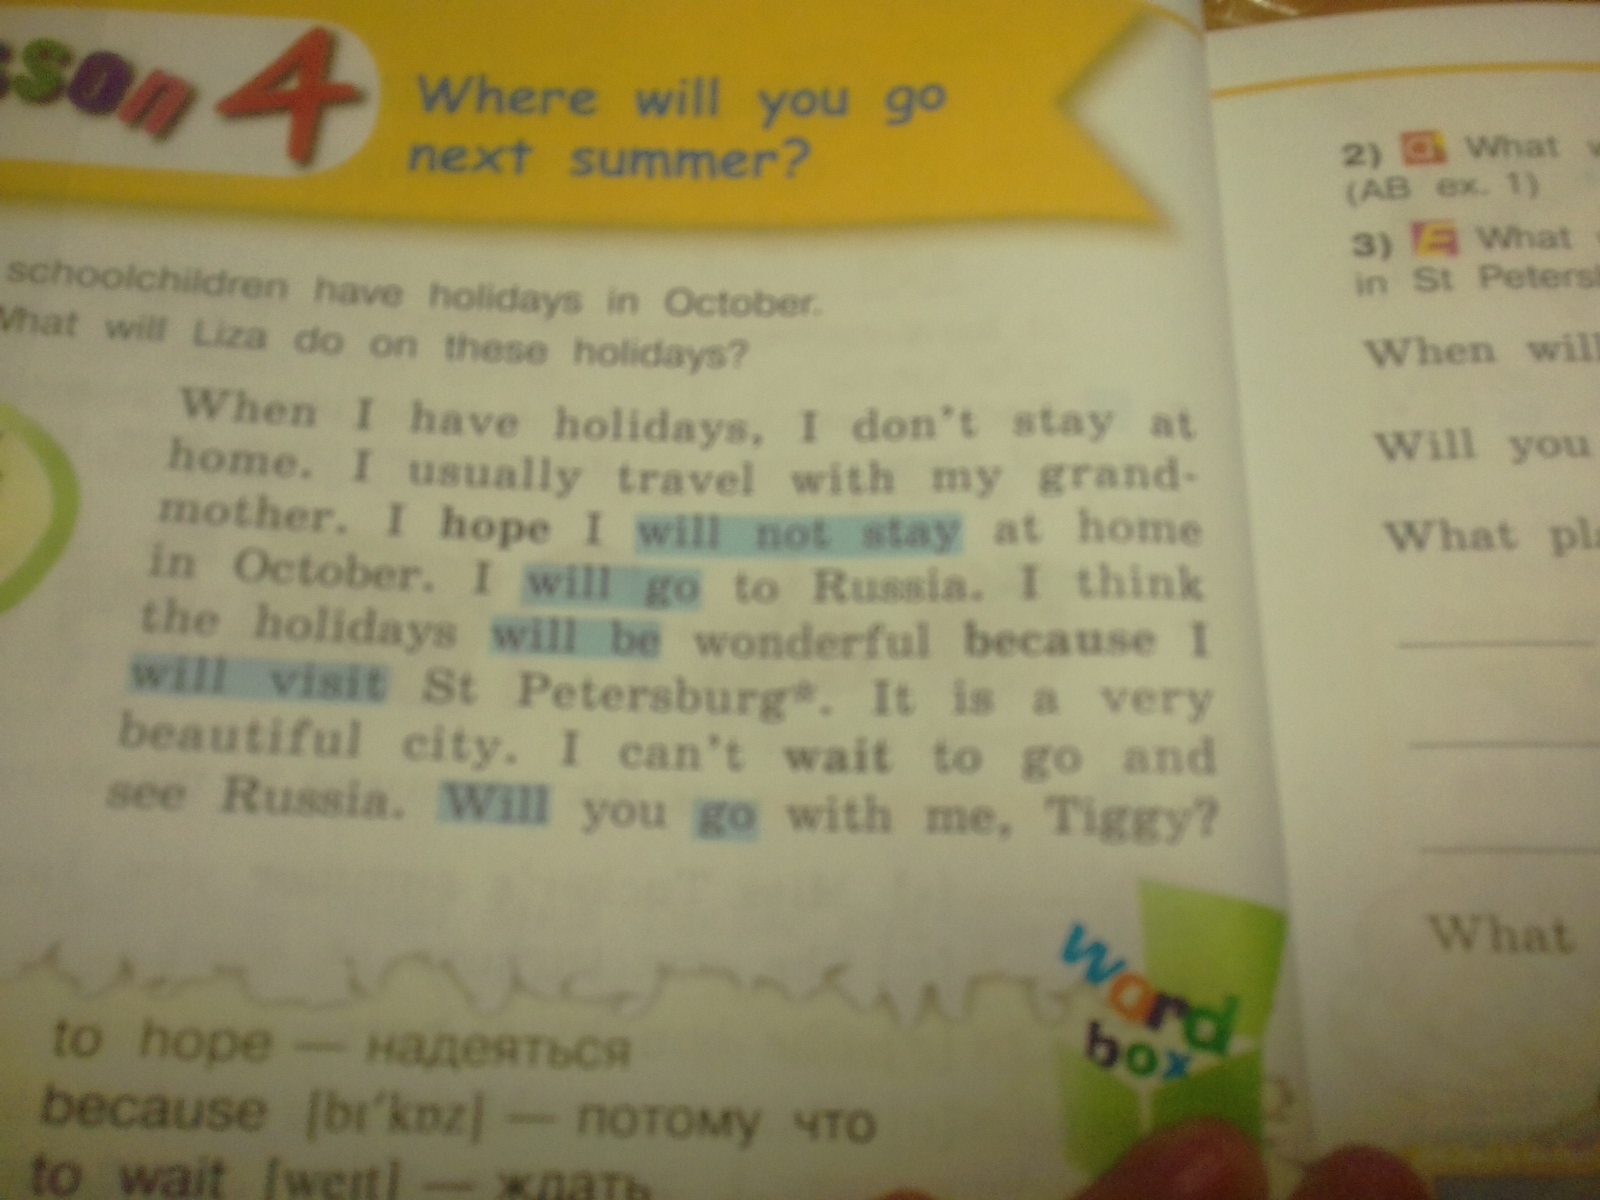 sson 4
Where will you go
next summer?
schoolchildren have holidays in October.
What will Liza do on these holidays?
When I have holidays, I don't stay at
home. I usually travel with my grand-
mother. I hope I will not stay at home
in October. I will go to Russia. I think
the holidays will be wonderful because I
will visit St Petersburg*. It is a very
beautiful city. I can't wait to go and
see Russia. Will you go with me, Tiggy?
word
box
to hope — надеяться
because [bɪ'kɒz] — потому что
to wait [weɪt] — ждать
2) G What w
(AB ex. 1)
3) E What
in St Petersb
When will
Will you
What pla
What